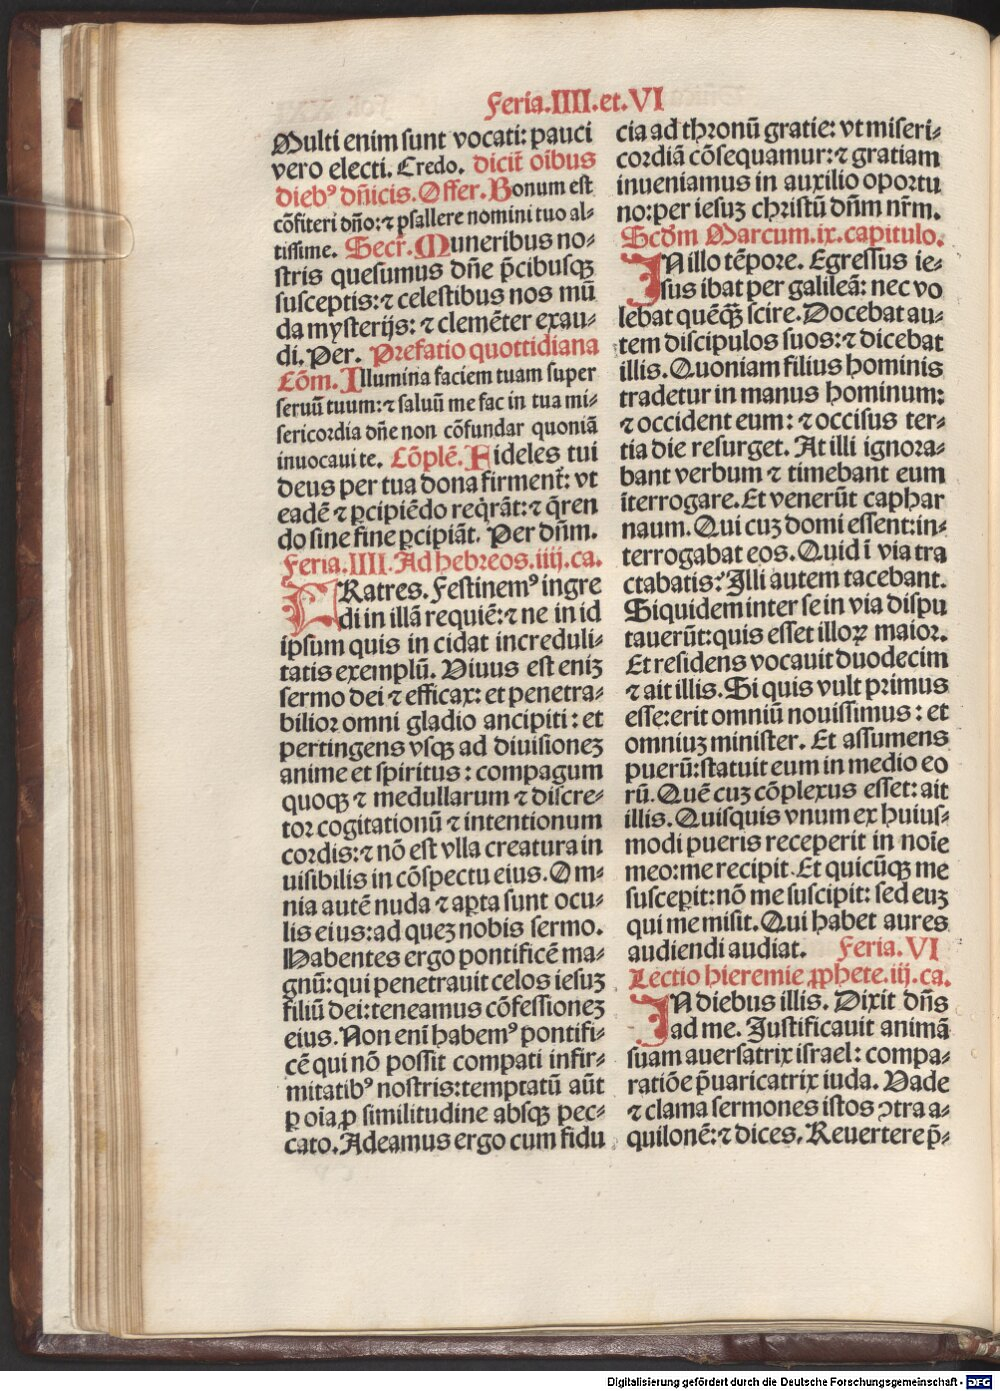 Feria.IIII.et.VI
Multi enim sunt vocati: pauci
vero electi. Credo. dicit̄ oībus
diebꝰ dn̄icis. Offer. Bonum est
cōfiteri dn̄o: ⁊ psallere nomini tuo al⸗
tissime. Secr̄. Muneribus no⸗
stris quesumus dn̄e p̄cibusqꝫ
susceptis: ⁊ celestibus nos mū
da mysterijs: ⁊ clemēter exau⸗
di. Per. Prefatio quottidiana
Cōm. Illumina faciem tuam super
seruū tuum: ⁊ saluū me fac in tua mi⸗
sericordia dn̄e non cōfundar quoniā
inuocaui te. Cōplē. Fideles tui
deus per tua dona firment̄: vt
eadē ⁊ ꝑcipiēdo reqͥrāt: ⁊ q̄ren
do sine fine ꝑcipiāt. Per dn̄m.
Feria.IIII. Ad hebreos.iiij.ca.
FRatres. Festinemꝰ ingre
di in illā requiē: ⁊ ne in id
ipsum quis in cidat increduli⸗
tatis exemplū. Viuus est eniꝫ
sermo dei ⁊ efficax: et penetra⸗
bilior omni gladio ancipiti: et
pertingens vsqꝫ ad diuisioneꝫ
anime et spiritus: compagum
quoqꝫ ⁊ medullarum ⁊ discre⸗
tor cogitationū ⁊ intentionum
cordis: ⁊ nō est vlla creatura in
uisibilis in cōspectu eius. Om⸗
nia autē nuda ⁊ aꝑta sunt ocu⸗
lis eius: ad queꝫ nobis sermo.
Habentes ergo pontificē ma⸗
gnū: qui penetrauit celos iesuꝫ
filiū dei: teneamus cōfessioneꝫ
eius. Non enī habemꝰ pontifi⸗
cē qui nō possit compati infir⸗
mitatibꝰ nostris: temptatū aūt
ꝑ oīa ꝓ similitudine absqꝫ pec⸗
cato. Adeamus ergo cum fidu
cia ad thronū gratie: vt miseri⸗
cordiā cōsequamur: ⁊ gratiam
inueniamus in auxilio oportu
no: per iesuꝫ christū dn̄m nr̄m.
Scd̄m Marcum.ix.capitulo.
IN illo tēpore. Egressus ie⸗
sus ibat per galileā: nec vo
lebat quēq̄ꝫ scire. Docebat au⸗
tem discipulos suos: ⁊ dicebat
illis. Quoniam filius hominis
tradetur in manus hominum:
⁊ occident eum: ⁊ occisus ter⸗
tia die resurget. At illi ignora⸗
bant verbum ⁊ timebant eum
īterrogare. Et venerūt caphar
naum. Qui cuꝫ domi essent: in⸗
terrogabat eos. Quid ī via tra
ctabatis? Illi autem tacebant.
Siquidem inter se in via dispu
tauerūt: quis esset illoꝝ maior.
Et residens vocauit duodecim
⁊ ait illis. Si quis vult primus
esse: erit omniū nouissimus: et
omniuꝫ minister. Et assumens
puerū: statuit eum in medio eo
rū. Quē cuꝫ cōplexus esset: ait
illis. Quisquis vnum ex huius⸗
modi pueris receperit in noīe
meo: me recipit. Et quicūqꝫ me
susceꝑit: nō me suscipit: sed euꝫ
qui me misit. Qui habet aures
audiendi audiat. Feria.VI
Lectio hieremie ꝓphete.iij.ca.
IN diebus illis. Dixit dn̄s
ad me. Justificauit animā
suam auersatrix israel: compa⸗
ratiōe p̄uaricatrix iuda. Vade
⁊ clama sermones istos ↄtra a⸗
quilonē: ⁊ dices. Reuertere p̄⸗
Digitalisierung gefördert durch die Deutsche Forschungsgemeinschaft - DFG